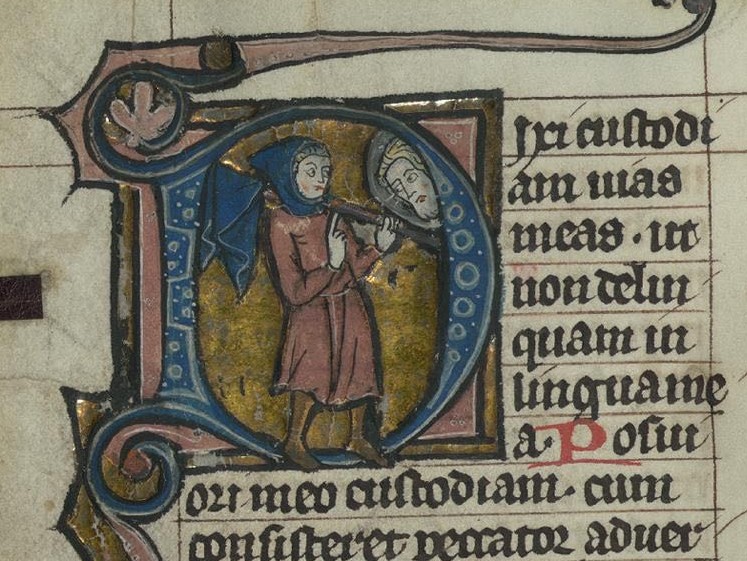 Dixi custodi
am uias
meas · ut
non delin
quam in
lingua me
a· Posui
ori meo custodiam · cum
consisteret peccator aduer